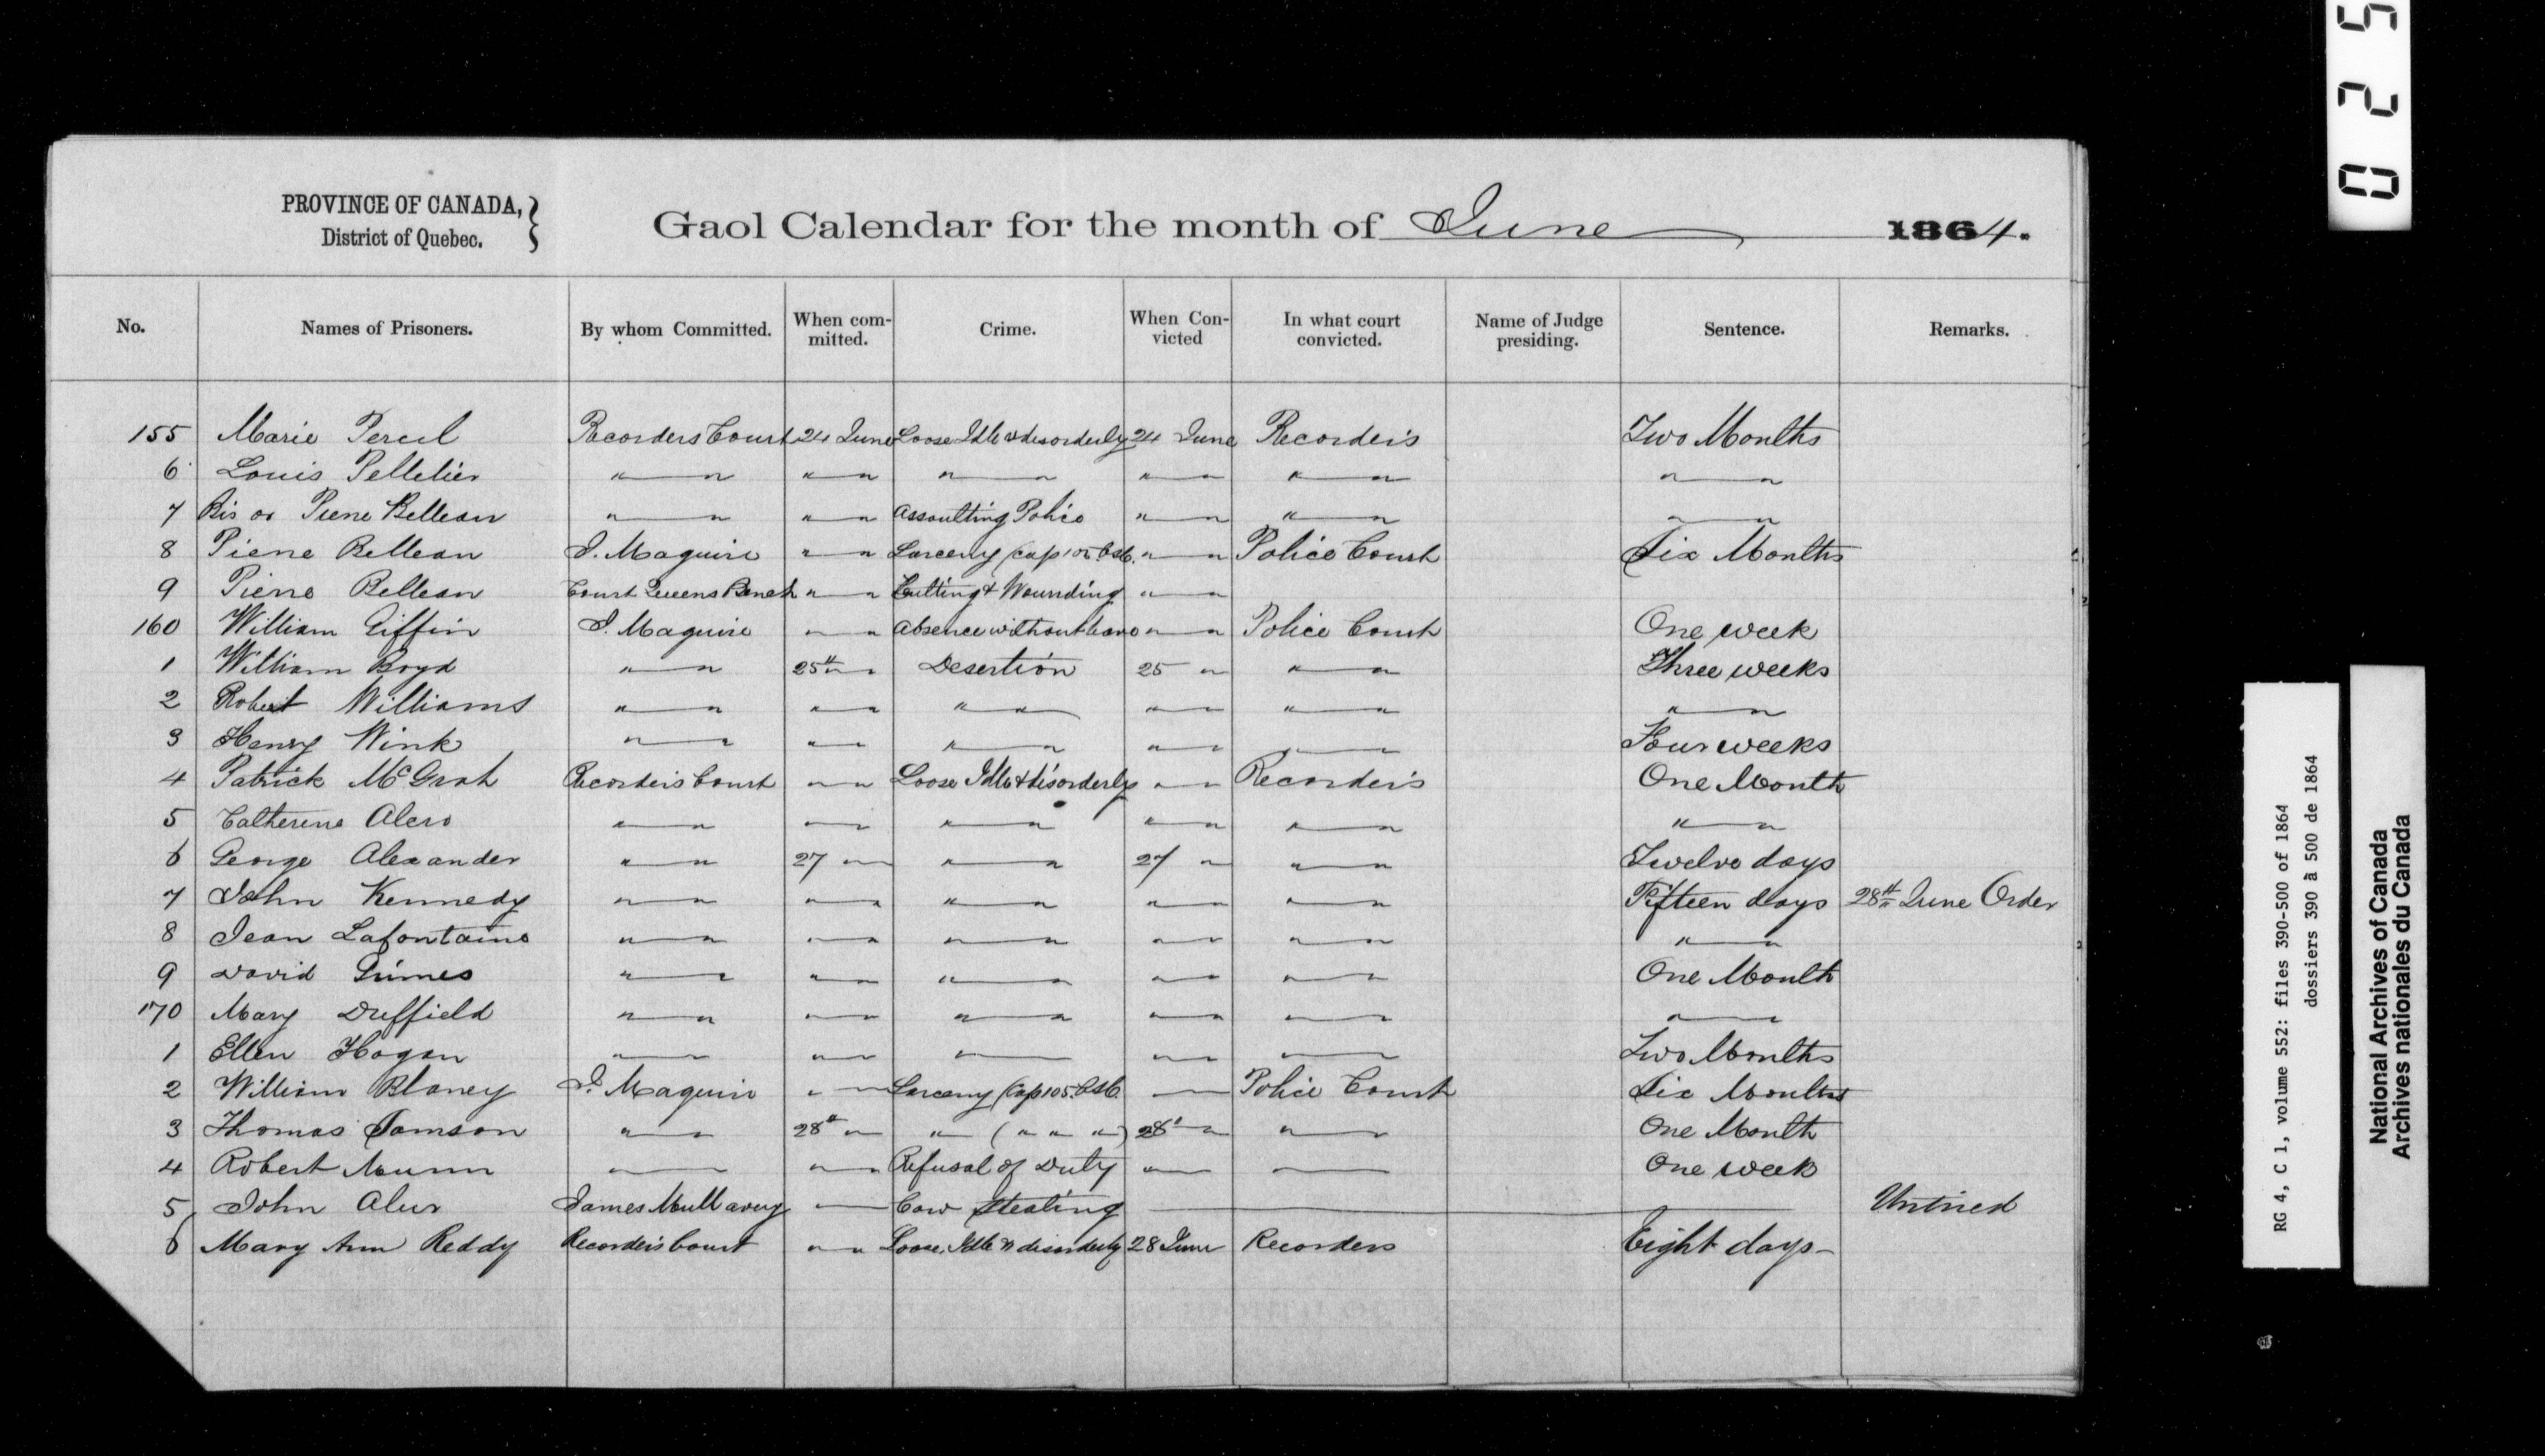 0 2 5
PROVINCE OF CANADA,
District of Quebec.
Gaol Calendar for the month of June 1864.
No. Names of Prisoners. By whom Committed. When com-mitted. Crime. When Con-victed In what court convicted. Name of Judge presiding. Sentence. Remarks.
155 Marie Percil Recorders Court 24 June Loose Idle & disorderly 24 June Recorder's Two Months
6 Louis Pelletier " " " " " " " " " " " "
7 Bis or Pierre Belleau " " " " Assaulting Police " " " " " "
8 Pierre Belleau J. Maguire " " Larceny (Cap 105. C.S.C. " " Police Court Six Months
9 Pierre Belleau Court Queens Bench " " Cutting & Wounding " "
160 William Giffin J. Maguire " " Absence without leave " " Police Court One week
1 William Boyd " " 25th " Desertion 25 " " " Three weeks
2 Robert Williams " " " " " " " " " " " "
3 Henry Wink " " " " " " " " " " Four weeks
4 Patrick McGrah Recorder's Court " " Loose Idle & disorderly " " Recorder's One Month
5 Catherine " " " " " " " " " " " "
6 George Alexander " " 27 " " " 27 " " " Twelve days
7 John Kennedy " " " " " " " " " " Fifteen days 28th June Order
8 Jean Lafontaine " " " " " " " " " " " "
9 David Grimes " " " " " " " " " " One Month
170 Mary Duffield " " " " " " " " " " " "
1 Ellen Hogan " " " " " " " " " " Two Months
2 William Blaney J. Maguire " " Larceny (Cap 105. C.S.C. " Police Court Six Months
3 Thomas Samson " " 28th " " ( " " " ) 28th " " " One Month
4 Robert Munn " " " " Refusal of Duty " " " " One week
5 John James Mullavey " Cow Stealing Untried
6 Mary Ann Reddy Recorder's Court " " Loose, Idle & disorderly 28 June Recorders Eight days
RG 4, C 1, volume 552: files 390-500 of 1864
dossiers 390 à 500 de 1864
National Archives of Canada
Archives nationales du Canada